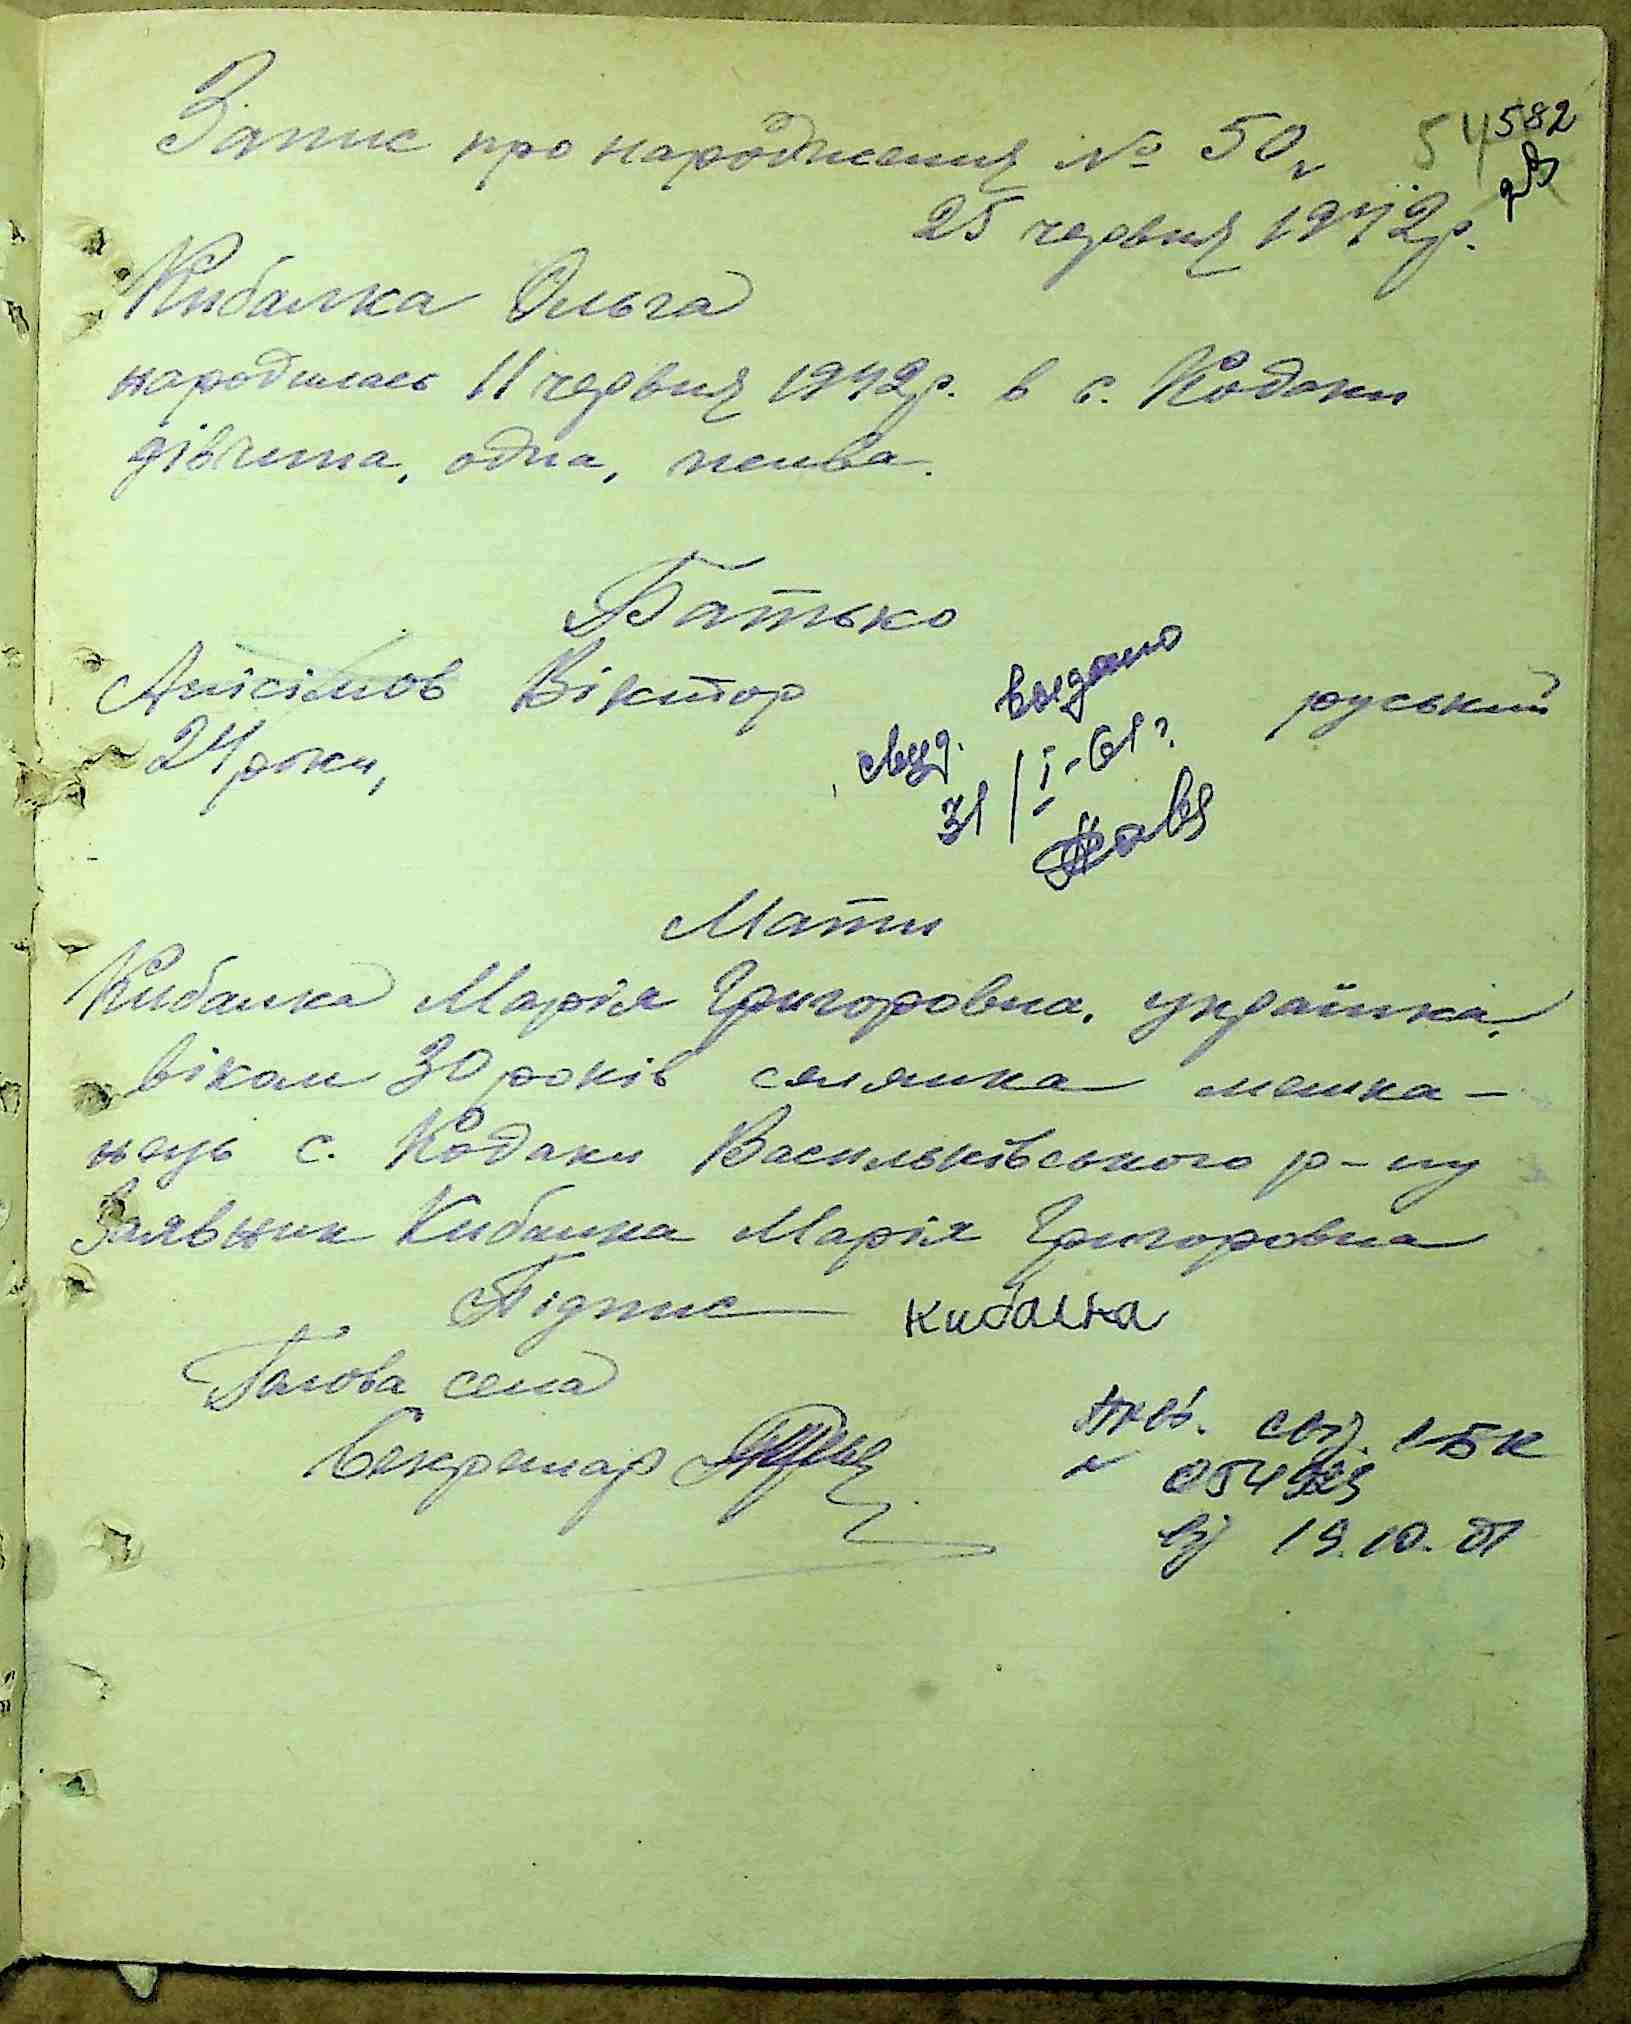 Запис про народження № 50
54 582
25 червня 1942р.
Кибалка Ольга
народилась 11 червня 1942р. в с. Кодаки
дівчина, одна, жива.
Батько
Анісімов Віктор руський
24 роки,
выдано
свид.
31/I-61г.
Мати
Кибалка Марія Григоровна, українка,
віком 30 років селянка мешка-
нець с. Кодаки Васильківського р-ну
Заявник Кибалка Марія Григоровна
Підпис Кибалка
Голова села
Секретар
Пов. свід. 1-БК
054923
від 19.10.01